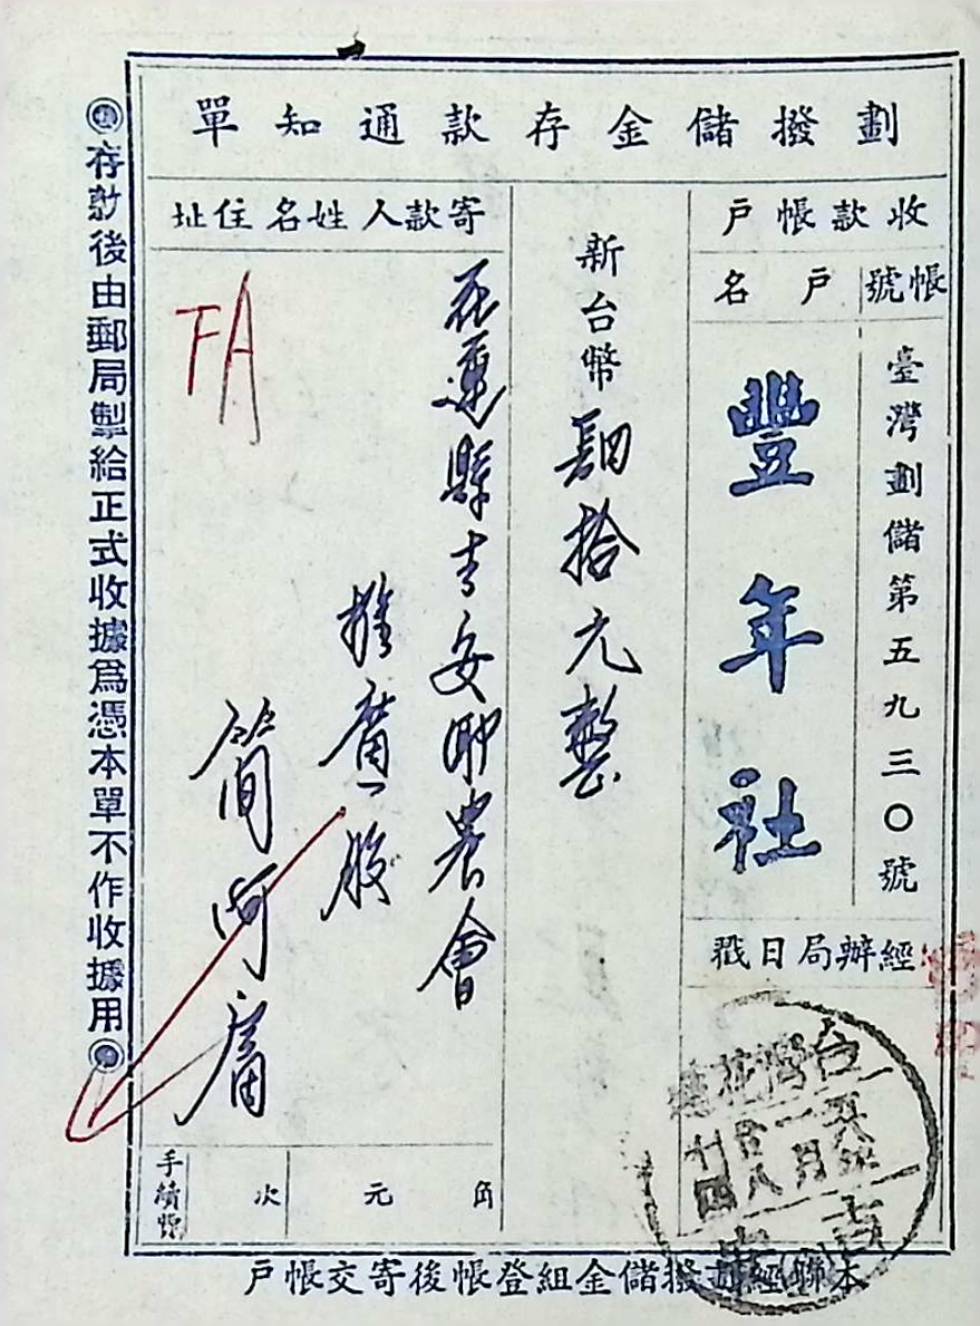 劃撥儲金存款通知單
收款帳戶
帳號
戶名
臺灣劃儲第五九三〇號
豐年社
經辦局日戳
新台幣肆拾元整
寄款人姓名住址
花蓮縣吉安鄉農會
推廣股
簡阿
FA
手續費
次
元
角
存款後由郵局掣給正式收據為憑本單不作收據用
本聯經劃撥儲金組登帳後寄交帳戶
台灣花蓮
吉安